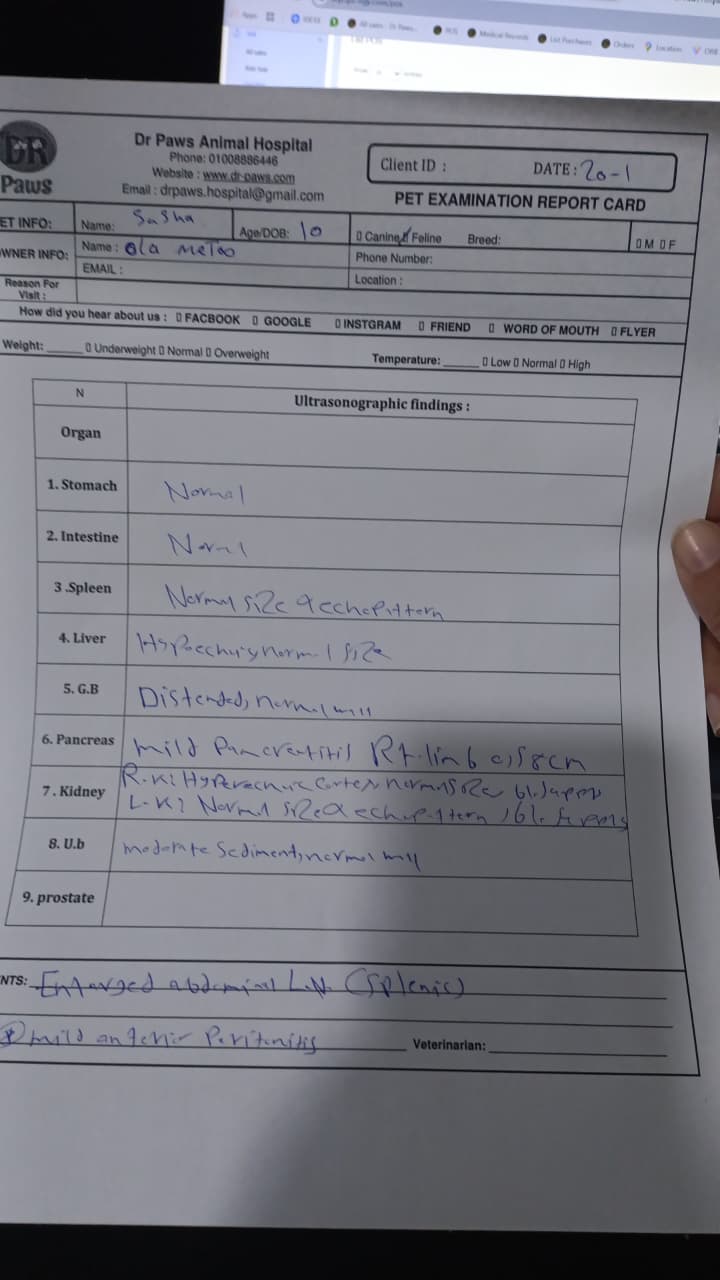 DR
Paws
Dr Paws Animal Hospital
Phone: 01008886446
Website : www.dr-paws.com
Email : drpaws.hospital@gmail.com
Client ID :
DATE: 20-1
PET EXAMINATION REPORT CARD
ET INFO: Name: Sasha Age/DOB: 10 Canine Feline Breed: M F
OWNER INFO: Name : Ola Phone Number:
EMAIL : Location :
Reason For
Visit :
How did you hear about us : FACBOOK GOOGLE INSTGRAM FRIEND WORD OF MOUTH FLYER
Weight: ______ Underweight Normal Overweight Temperature: ______ Low Normal High
N Ultrasonographic findings :
Organ
1. Stomach Normal
2. Intestine
3 .Spleen size & echopattern
4. Liver size
5. G.B Distended, normal wall
6. Pancreas mild Pancreatitis Rt. limb
7. Kidney R.K: Hyperechoic Cortex normal size
L.K: Normal size & echopattern
8. U.b moderate Sediment, normal wall
9. prostate
NTS: Enlarged abdominal L.N (Splenic)
mild Peritonitis Veterinarian: